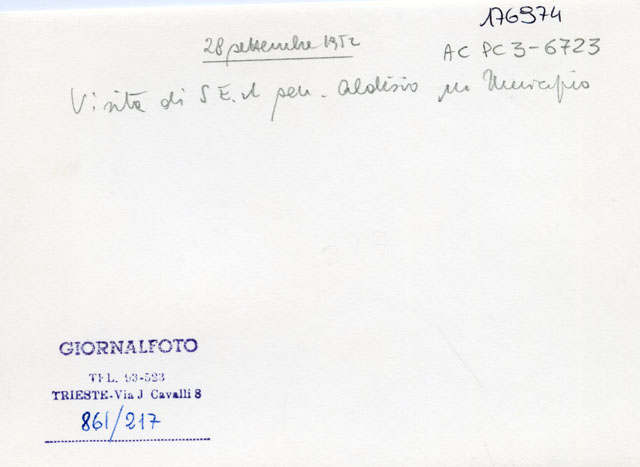 176974
28 settembre 1952
AC PC 3-6723
Visita di S.E. il sen. Aldisio in Municipio
GIORNALFOTO
TEL. 93-523
TRIESTE-Via J Cavalli 8
861/217